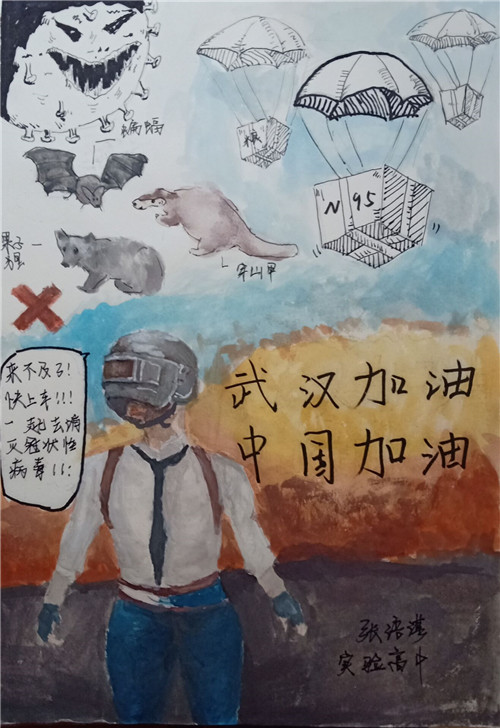 蝙蝠
粮
N95
果子
狸
穿山甲
来不及了!
快上车!!!
一起去消
灭冠状性
病毒!!!
武汉加油
中国加油
实验高中